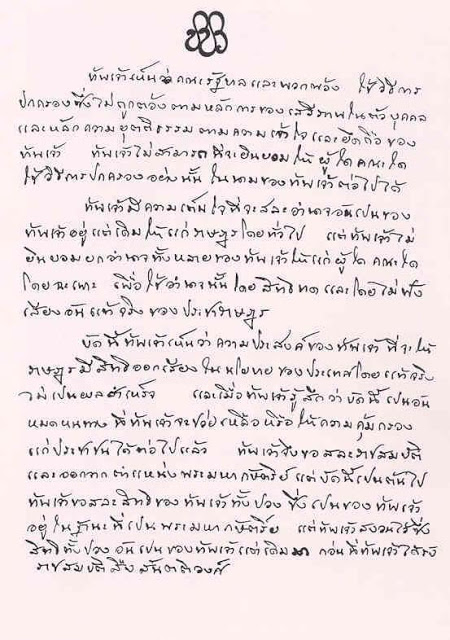 ข้าพเจ้าเห็นว่าคณะรัฐบาลและพวกพ้อง ใช้วิธีการ
ปกครองซึ่งไม่ถูกต้องตามหลักการของเสรีภาพในตัวบุคคล
และหลักความยุตติธรรมตามความเข้าใจและยึดถือของ
ข้าพเจ้า ข้าพเจ้าไม่สามารถที่จะยินยอมให้ผู้ใด คณะใด
ใช้วิธีการปกครองอย่างนั้น ในนามของข้าพเจ้าต่อไปได้
ข้าพเจ้ามีความเต็มใจที่จะสละอำนาจอันเป็นของ
ข้าพเจ้าอยู่แต่เดิมให้แก่ราษฎรโดยทั่วไป แต่ข้าพเจ้าไม่
ยินยอมยกอำนาจทั้งหลายของข้าพเจ้าให้แก่ผู้ใด คณะใด
โดยฉะเพาะ เพื่อใช้อำนาจนั้นโดยสิทธิขาด และโดยไม่ฟัง
เสียงอันแท้จริงของประชาราษฎร
บัดนี้ข้าพเจ้าเห็นว่า ความประสงค์ของข้าพเจ้าที่จะให้
ราษฎรมีสิทธิออกเสียงในนโยบายของประเทศโดยแท้จริง
ไม่เป็นผลสำเร็จ และเมื่อข้าพเจ้ารู้สึกว่าบัดนี้เป็นอัน
หมดหนทางที่ข้าพเจ้าจะช่วยเหลือหรือให้ความคุ้มครอง
แก่ประชาชนได้ต่อไปแล้ว ข้าพเจ้าจึงขอสละราชสมบัติ
และออกจากตำแหน่งพระมหากษัตริย์ แต่บัดนี้เป็นต้นไป
ข้าพเจ้าขอสละสิทธิของข้าพเจ้าทั้งปวง ซึ่งเป็นของข้าพเจ้า
อยู่ในฐานะที่เป็นพระมหากษัตริย์ แต่ข้าพเจ้าสงวนไว้ซึ่ง
สิทธิทั้งปวงอันเป็นของข้าพเจ้าแต่เดิมมา ก่อนที่ข้าพเจ้าได้รับ
ราชสมบัติสืบสันตติวงศ์